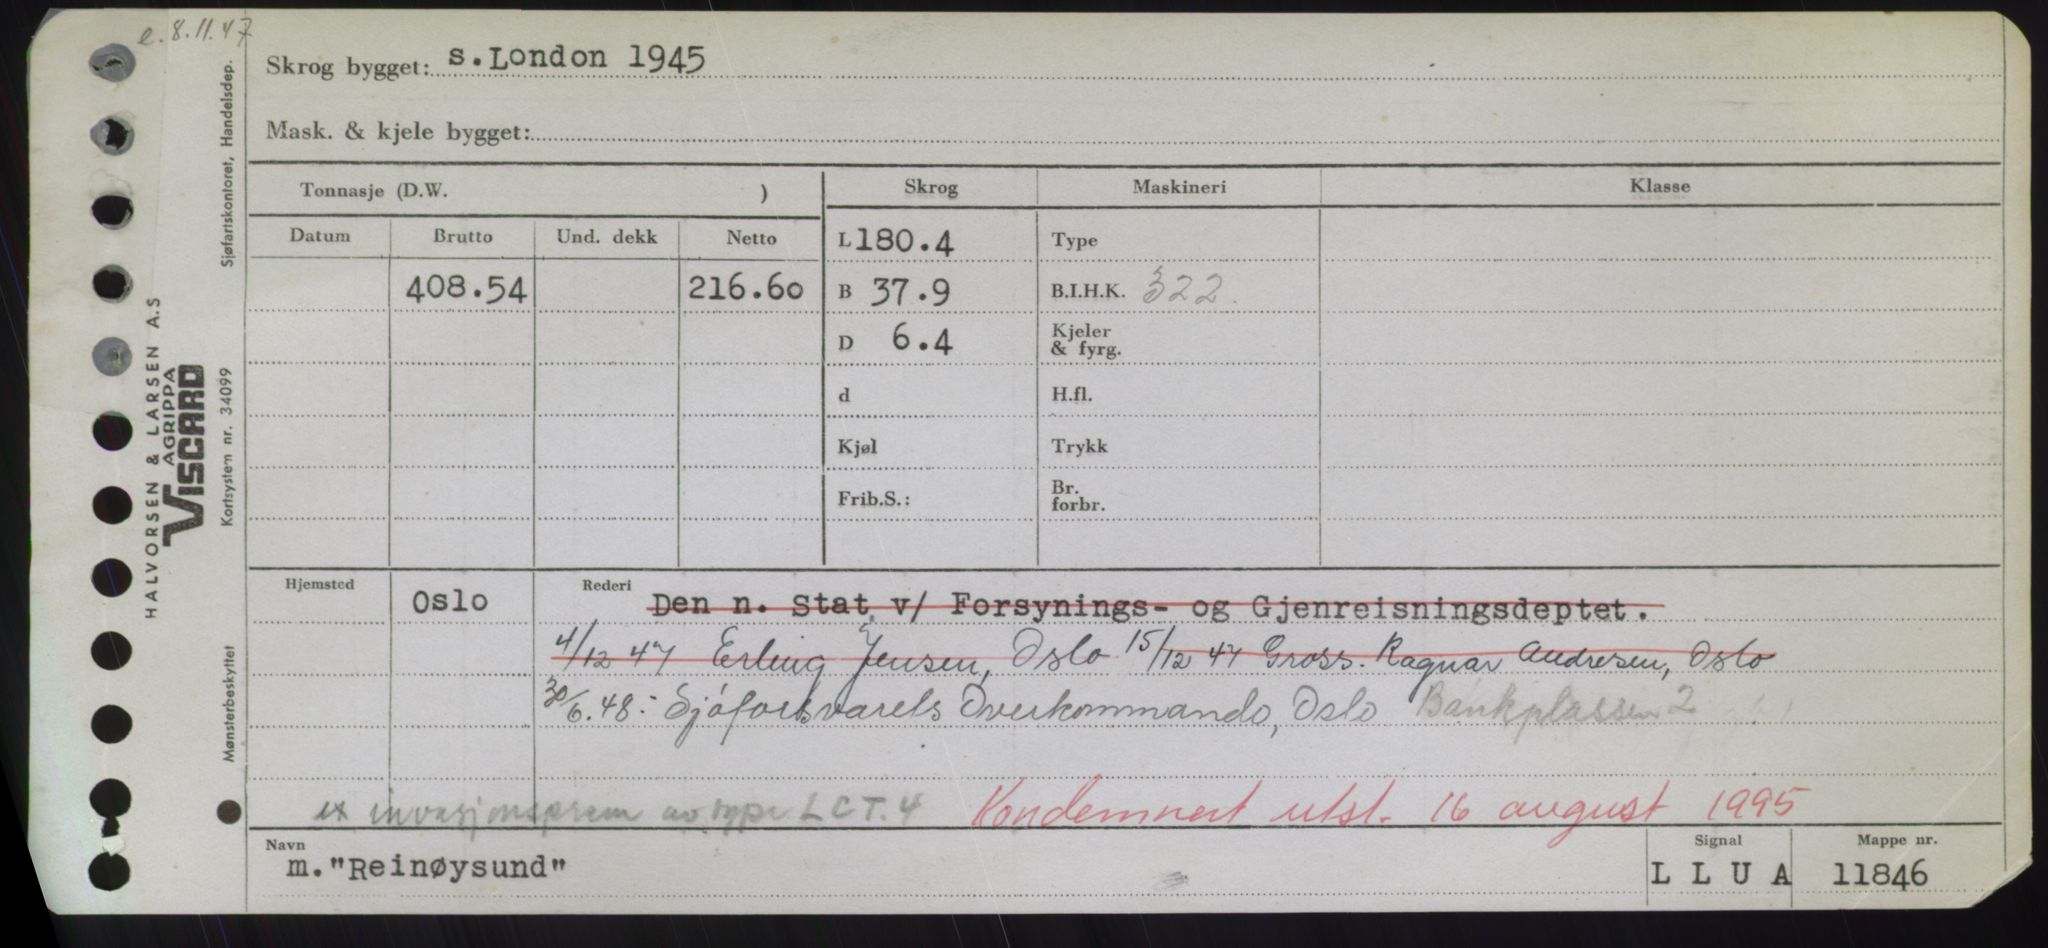 e. 8.11.47
Skrog bygget: s.London 1945
Mask. & kjele bygget:
Tonnasje (D.W. )
Skrog
Maskineri
Klasse
Datum
Brutto
Und. dekk
Netto
408.54
216.60
L 180.4
B 37.9
D 6.4
d
Kjøl
Frib.S.:
Type
B.I.H.K. 322.
Kjeler
& fyrg.
H.fl.
Trykk
Br.
forbr.
Hjemsted
Oslo
Rederi
Den n. Stat v/ Forsynings- og Gjenreisningsdeptet.
4/12 47 Erling Jensen, Oslo 15/12 47 Gross. Ragnar Andresen, Oslo
30/6.48:- Sjöforsvarets Overkommando, Oslo Bankplassen 2
ex invasjonspram av type LCT.4
Kondemnert utst. 16 august 1995
Navn
m."Reinøysund"
Signal
L L U A
Mappe nr.
11846
HALVORSEN & LARSEN A.S
AGRIPPA
VISCARD
Sjøfartskontoret, Handelsdep.
Kortsystem nr. 34099
Mønsterbeskyttet